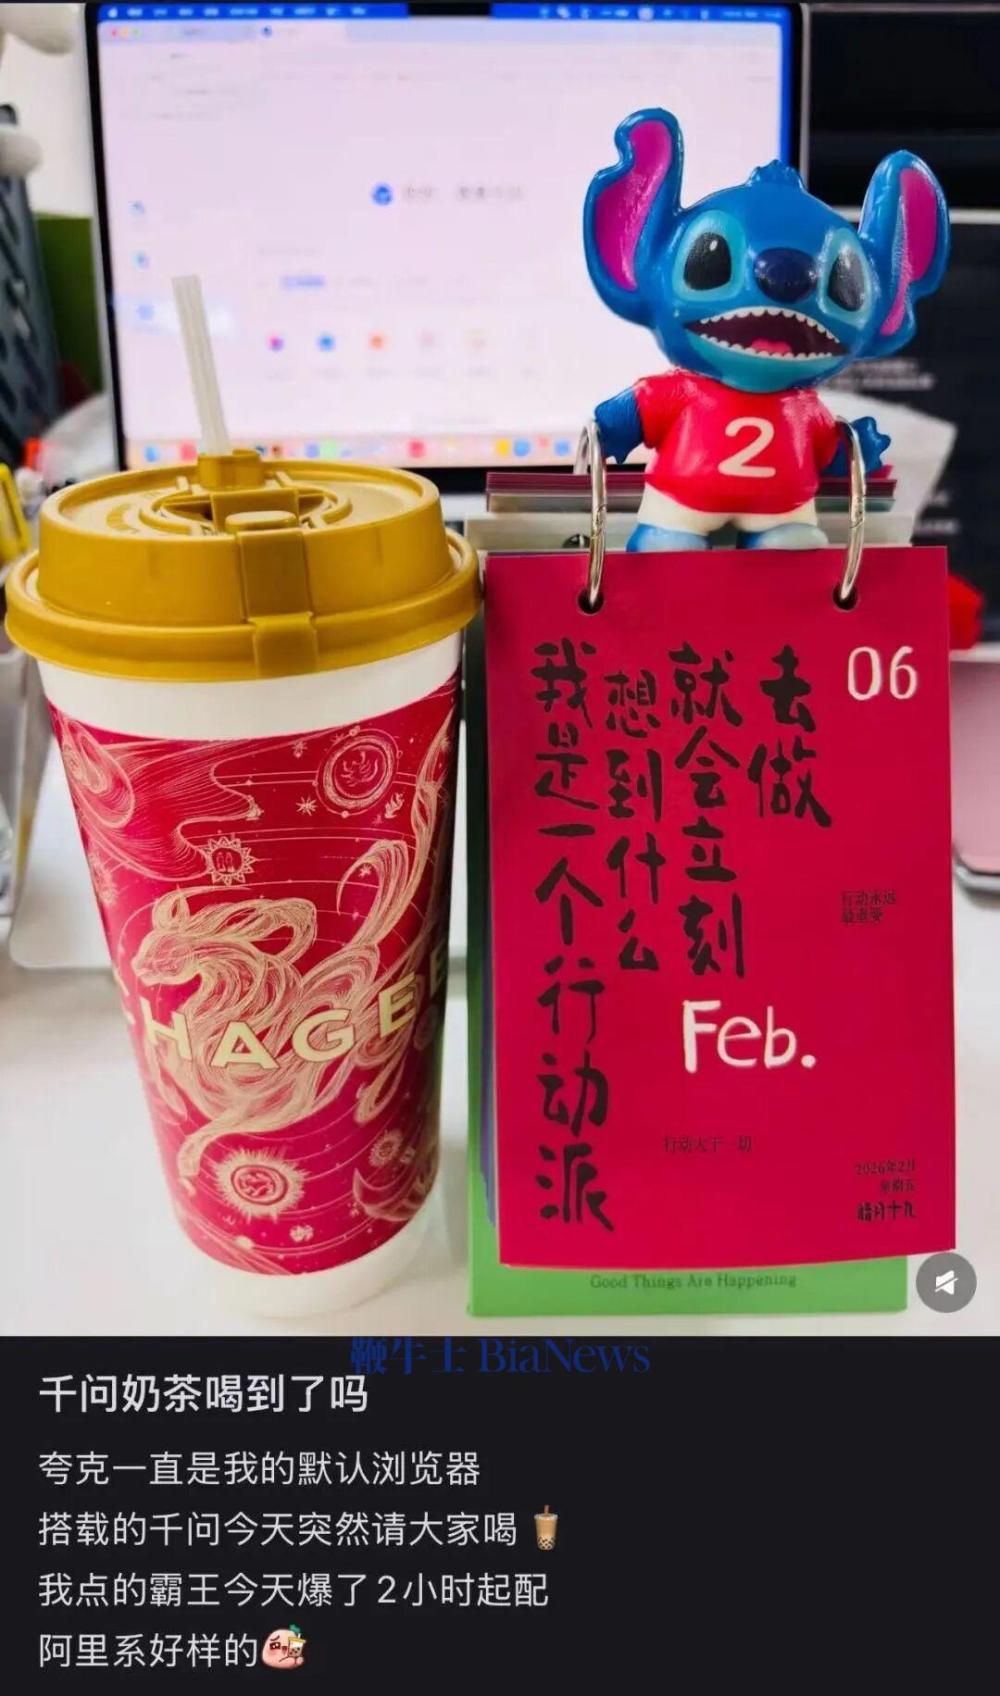 2
06
去做
就会立刻
想到什么
我是一个行动派
行动永远
最重要
Feb.
行动大于一切
2026年2月
星期五
腊月十九
Good Things Are Happening
CHAGEE
鞭牛士 BiaNews
千问奶茶喝到了吗
夸克一直是我的默认浏览器
搭载的千问今天突然请大家喝🧋
我点的霸王今天爆了2小时起配
阿里系好样的